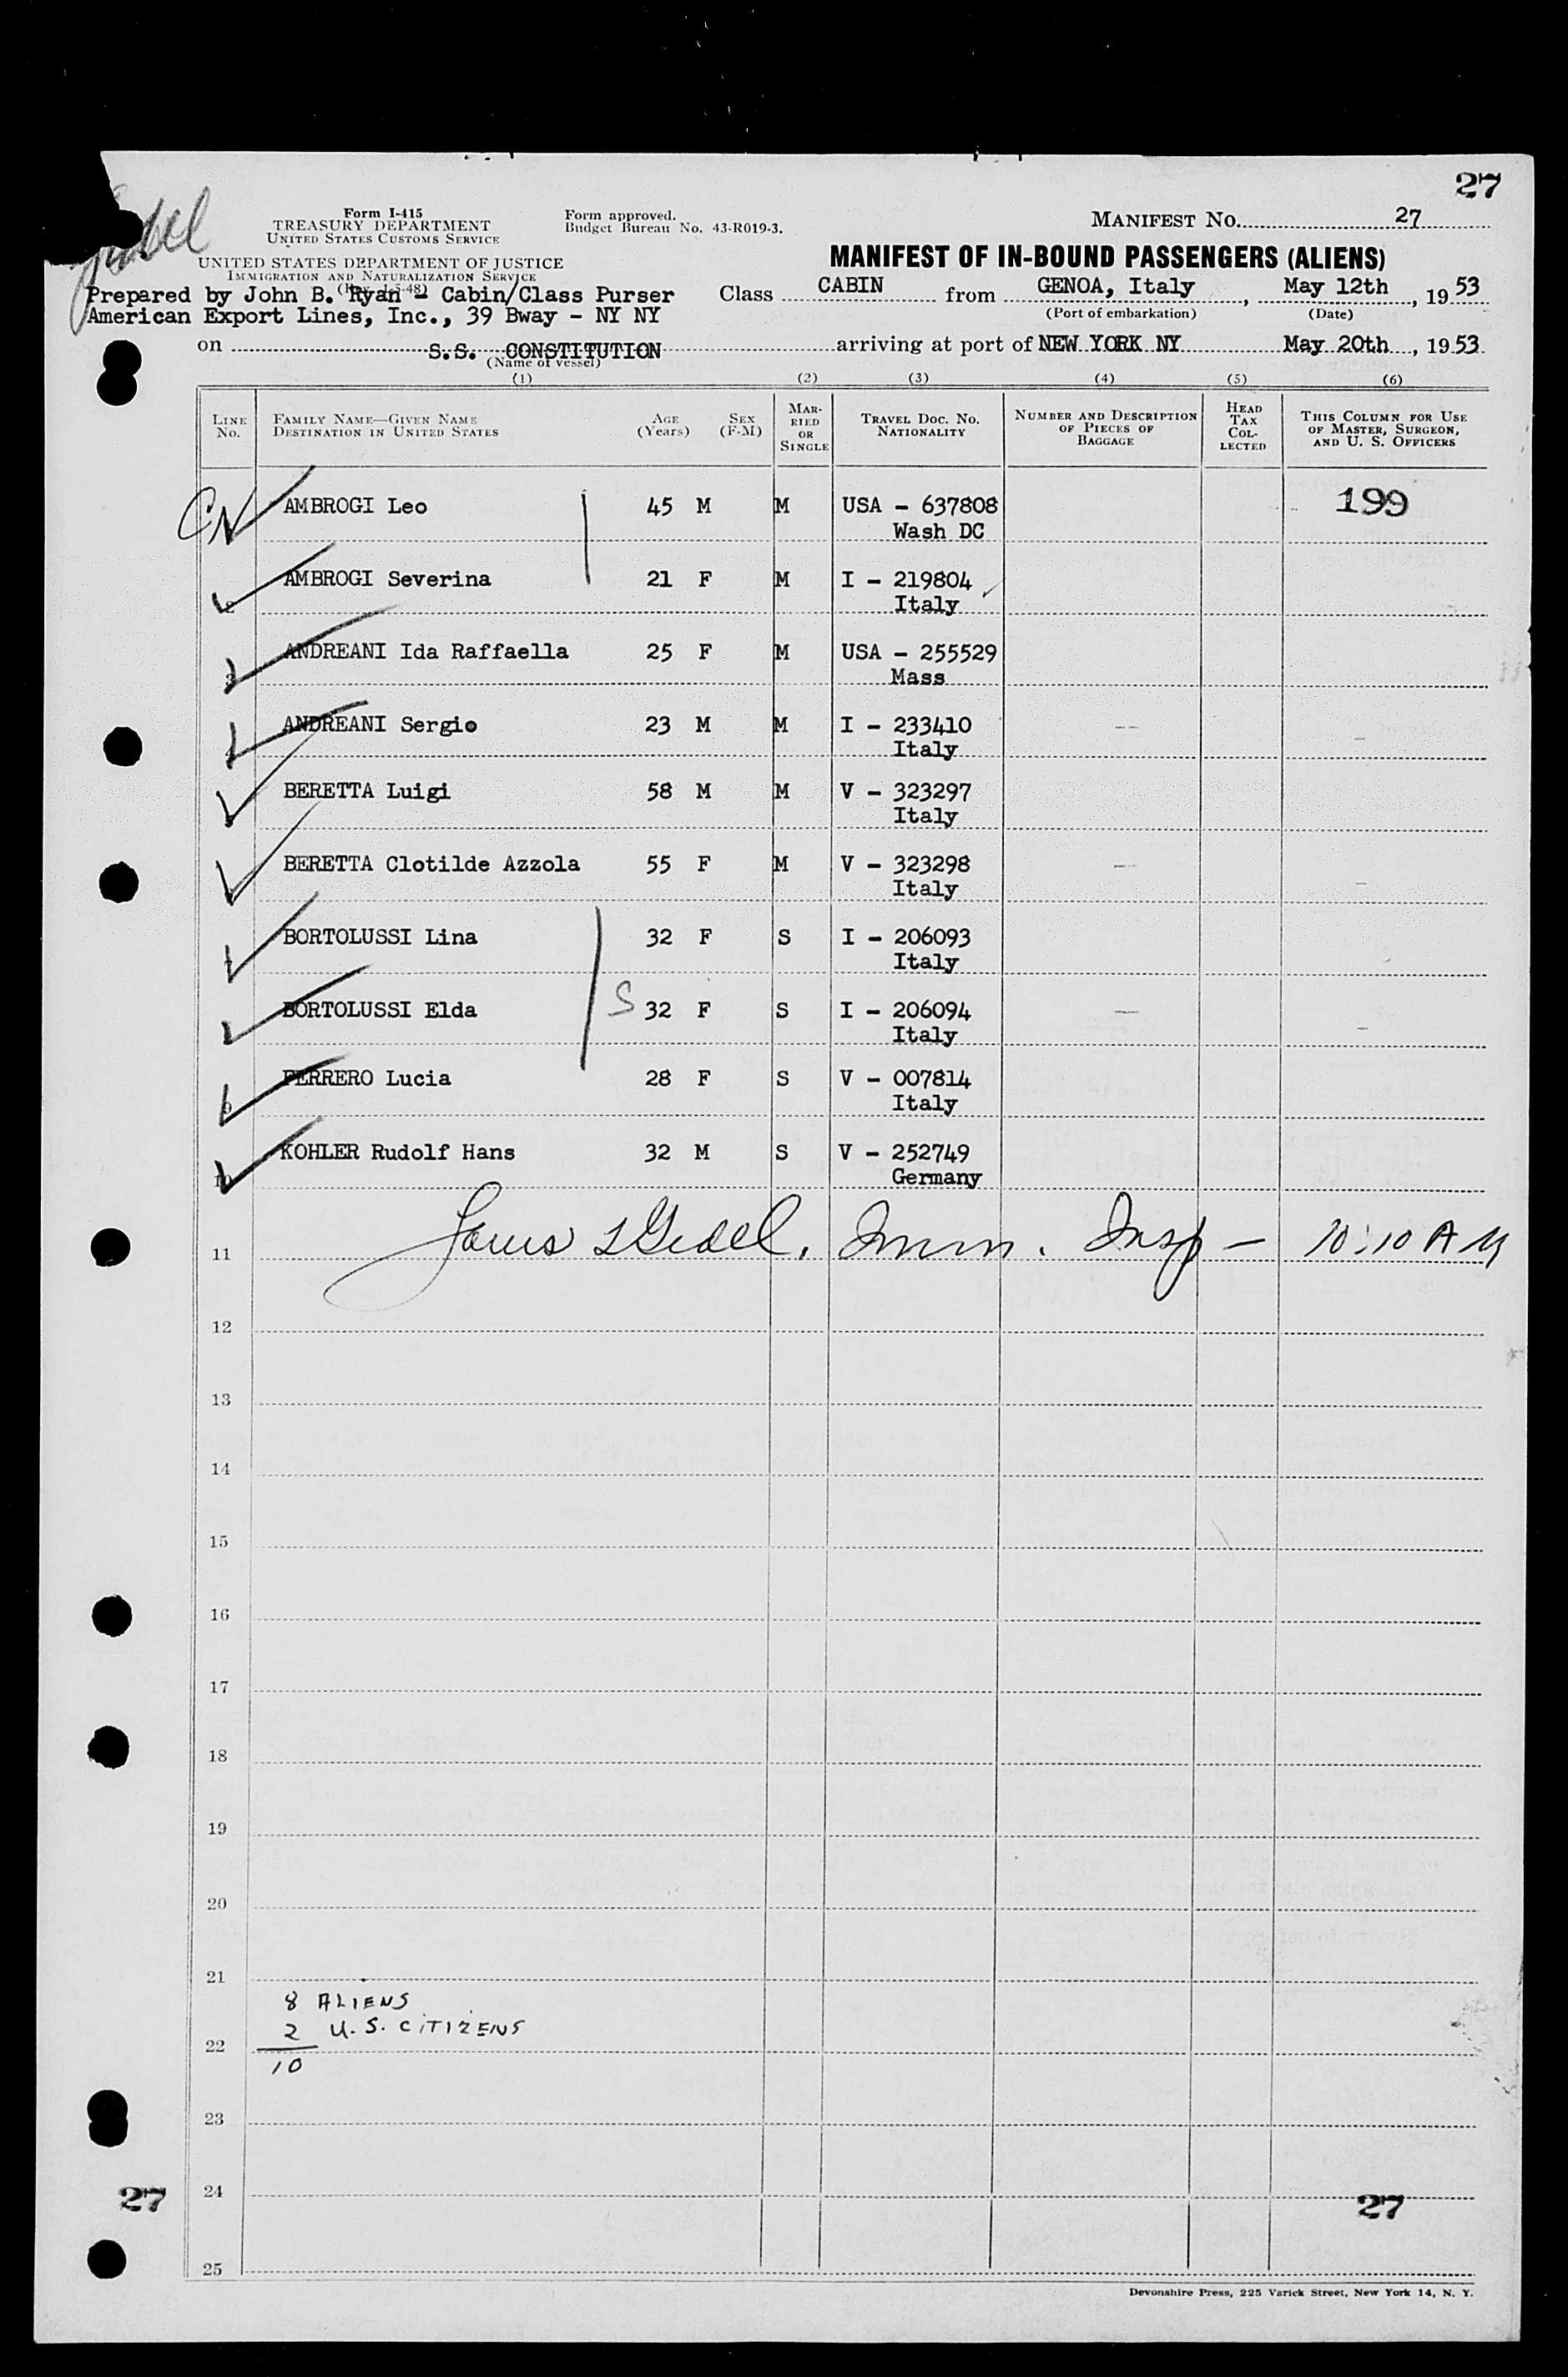 27
Form I-415
TREASURY DEPARTMENT
UNITED STATES CUSTOMS SERVICE
Form approved.
Budget Bureau No. 43-R019-3.
MANIFEST No. 27
UNITED STATES DEPARTMENT OF JUSTICE
IMMIGRATION AND NATURALIZATION SERVICE
MANIFEST OF IN-BOUND PASSENGERS (ALIENS)
Prepared by John B. Ryan - Cabin/Class Purser
American Export Lines, Inc., 39 Bway - NY NY
Class CABIN from GENOA, Italy, May 12th, 1953
(Port of embarkation) (Date)
on S.S. CONSTITUTION arriving at port of NEW YORK NY May 20th, 1953
(Name of vessel)
(1) (2) (3) (4) (5) (6)
LINE No. FAMILY NAME—GIVEN NAME DESTINATION IN UNITED STATES AGE (Years) SEX (F-M) MARRIED OR SINGLE TRAVEL DOC. NO. NATIONALITY NUMBER AND DESCRIPTION OF PIECES OF BAGGAGE HEAD TAX COLLECTED THIS COLUMN FOR USE OF MASTER, SURGEON, AND U. S. OFFICERS
CN AMBROGI Leo 45 M M USA - 637808 199
Wash DC
2 AMBROGI Severina 21 F M I - 219804
Italy
3 ANDREANI Ida Raffaella 25 F M USA - 255529
Mass
ANDREANI Sergio 23 M M I - 233410
Italy
BERETTA Luigi 58 M M V - 323297
Italy
BERETTA Clotilde Azzola 55 F M V - 323298
Italy
BORTOLUSSI Lina 32 F S I - 206093
Italy
BORTOLUSSI Elda S 32 F S I - 206094
Italy
9 FERRERO Lucia 28 F S V - 007814
Italy
10 KOHLER Rudolf Hans 32 M S V - 252749
Germany
11 Imm. Insp — 10:10 AM
12
13
14
15
16
17
18
19
20
21
8 ALIENS
2 U.S. CITIZENS
22
10
23
24
27 27
25
Devonshire Press, 225 Varick Street, New York 14, N. Y.